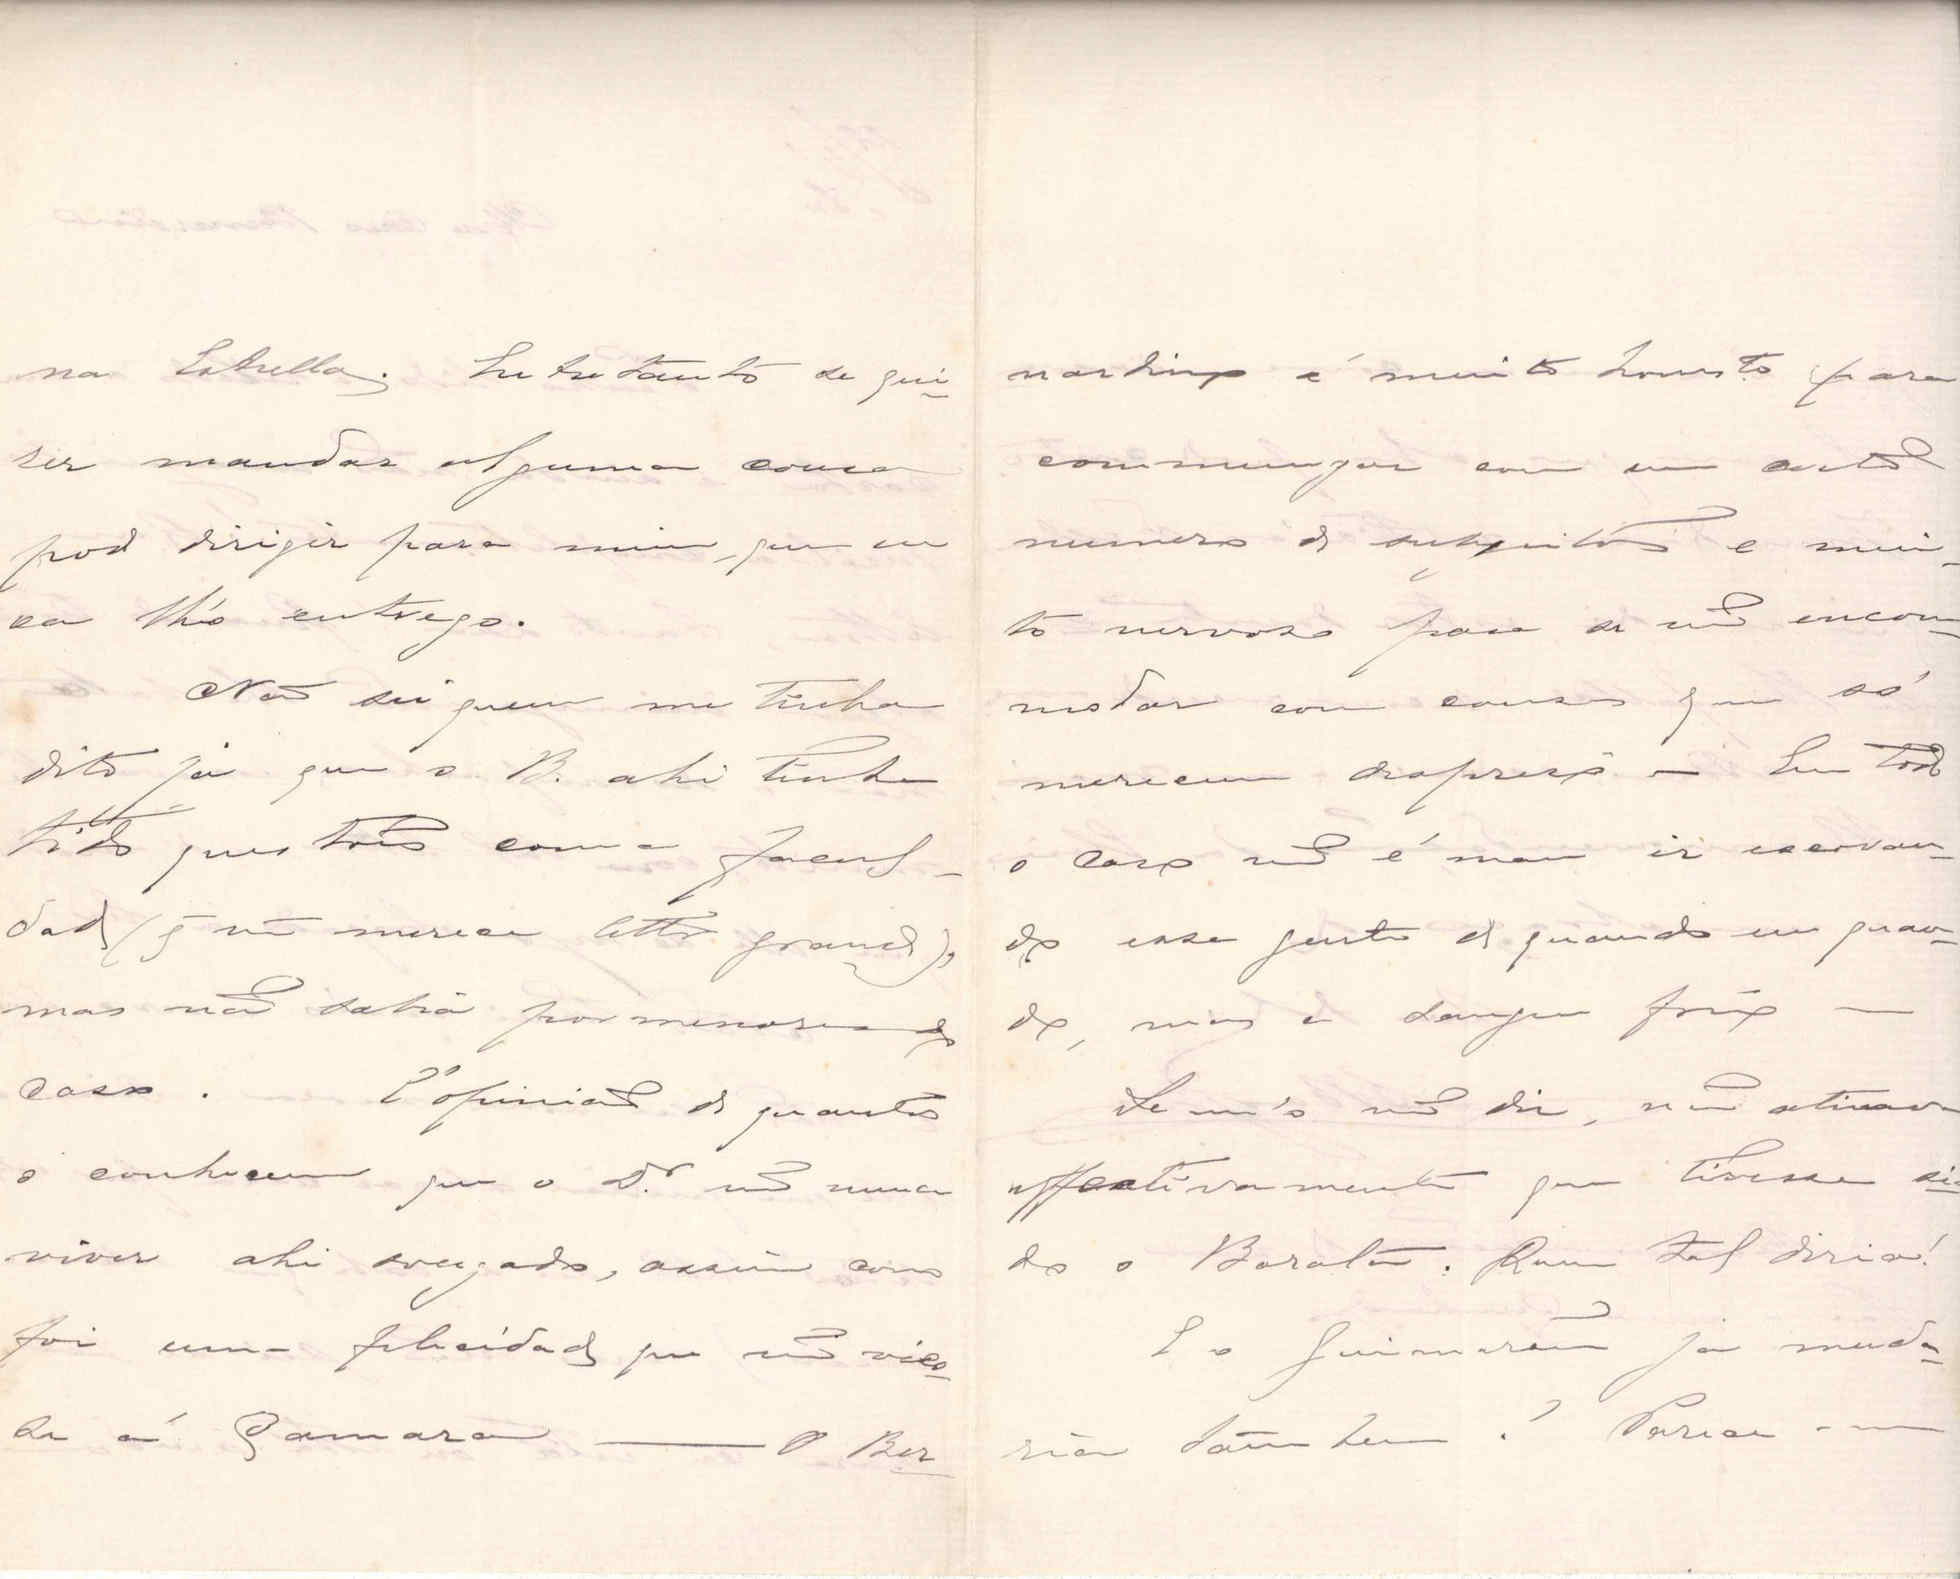 na Estrella. Entretanto se qui-
ser mandar alguma cousa
pode dirigir para mim, que eu
ca lh'o entrego.
Não sei quem me tinha
dito já que o B. ahi tinha
tido questões com a facul-
dade (q̃ não merece lettra grande),
mas não sabia pormenores do
caso. É opinião de quantos
o conhecem que o Dr. não nunca
viver ahi socegado, assim como
foi uma felicidade que não vies-
se á Camara — O Ber-
nardino é muito honesto para
commungar com um certo
numero de sugeitos e mui-
to nervoso para se não encom-
modar com cousas que só
merecem desprezo — Em todo
o caso não é mau ir escovan-
do essa gente de quando em quan-
do, mas a sangue frio —
Se m'o não diz, não atinava
effectivamente que tivesse si-
do o Quem tal diria!
E o Guimarães já muda-
ria tambem? Parece-me